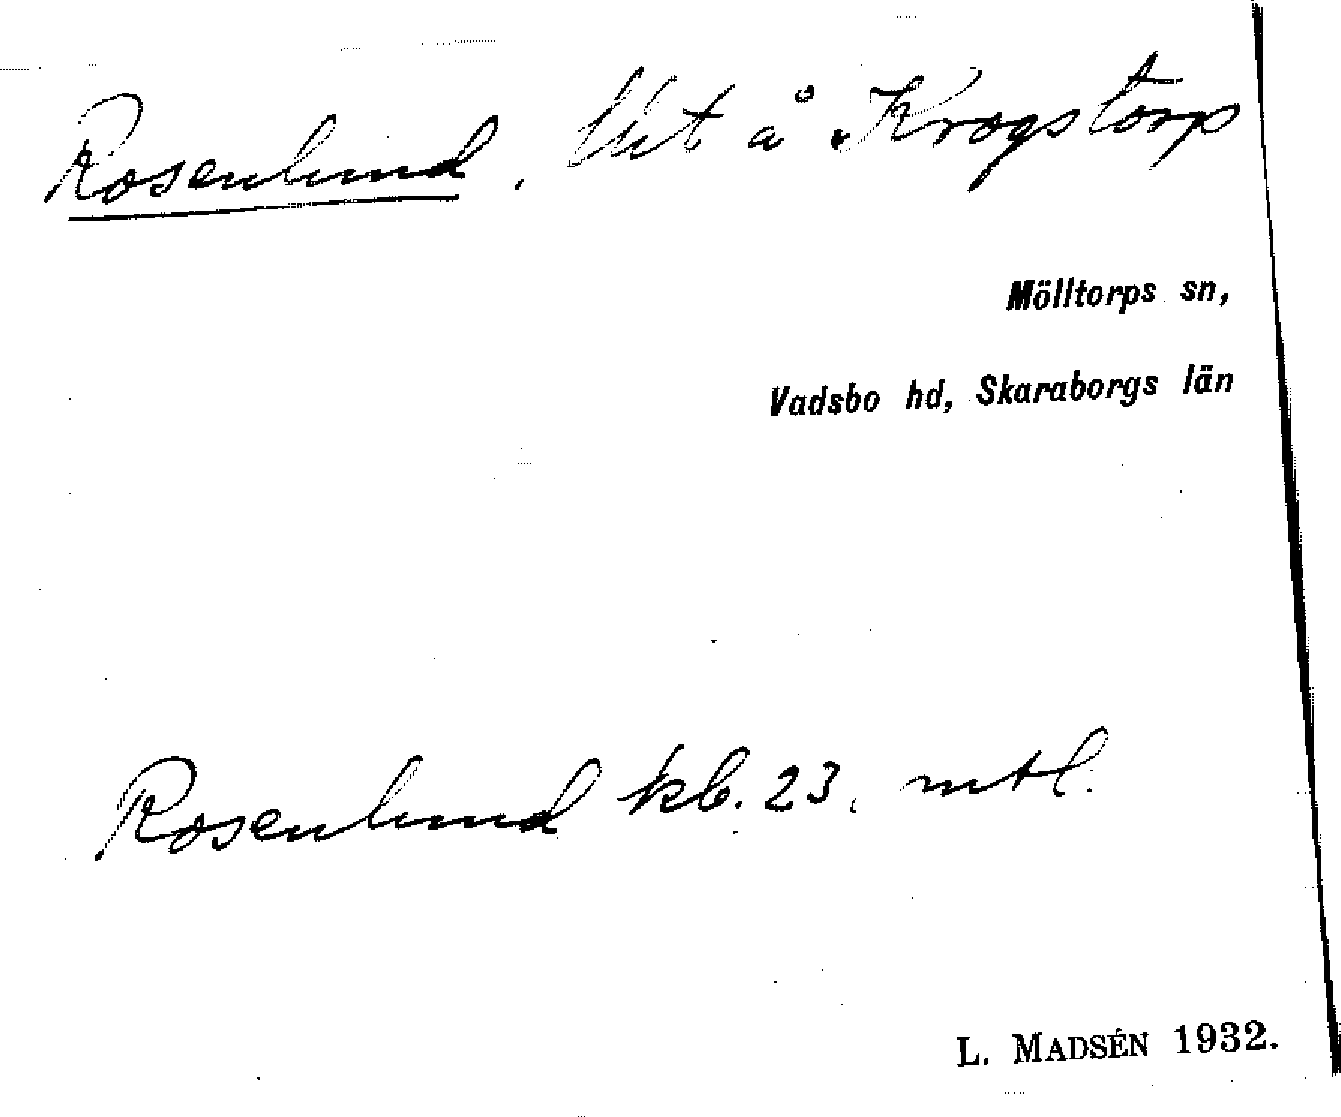 Rosenlund, lht å Krogstorp
Mölltorps sn,
Vadsbo hd, Skaraborgs län
Rosenlund kb. 23, mtl.
L. MADSÉN 1932.